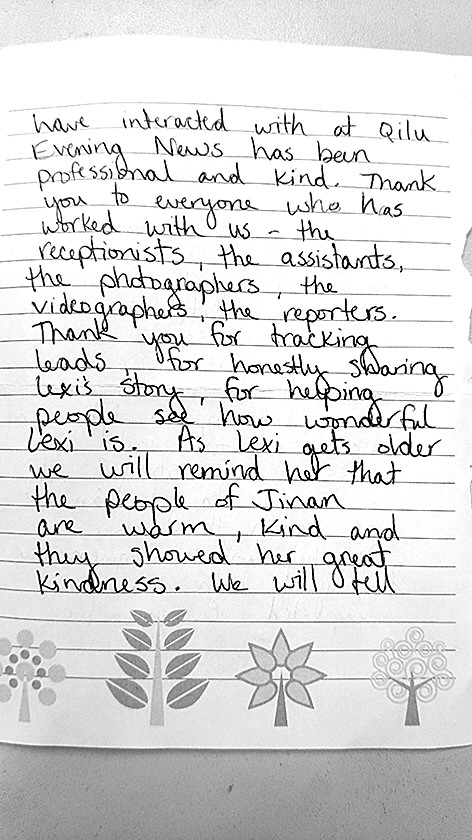 have interacted with at Qilu
Evening News has been
professional and kind. Thank
you to everyone who has
worked with us - the
receptionists, the assistants,
the photographers, the
videographers, the reporters.
Thank you for tracking
leads, for honestly sharing
Lexi's story, for helping
people see how wonderful
Lexi is. As Lexi gets older
we will remind her that
the people of Jinan
are warm, kind and
they showed her great
kindness. We will tell